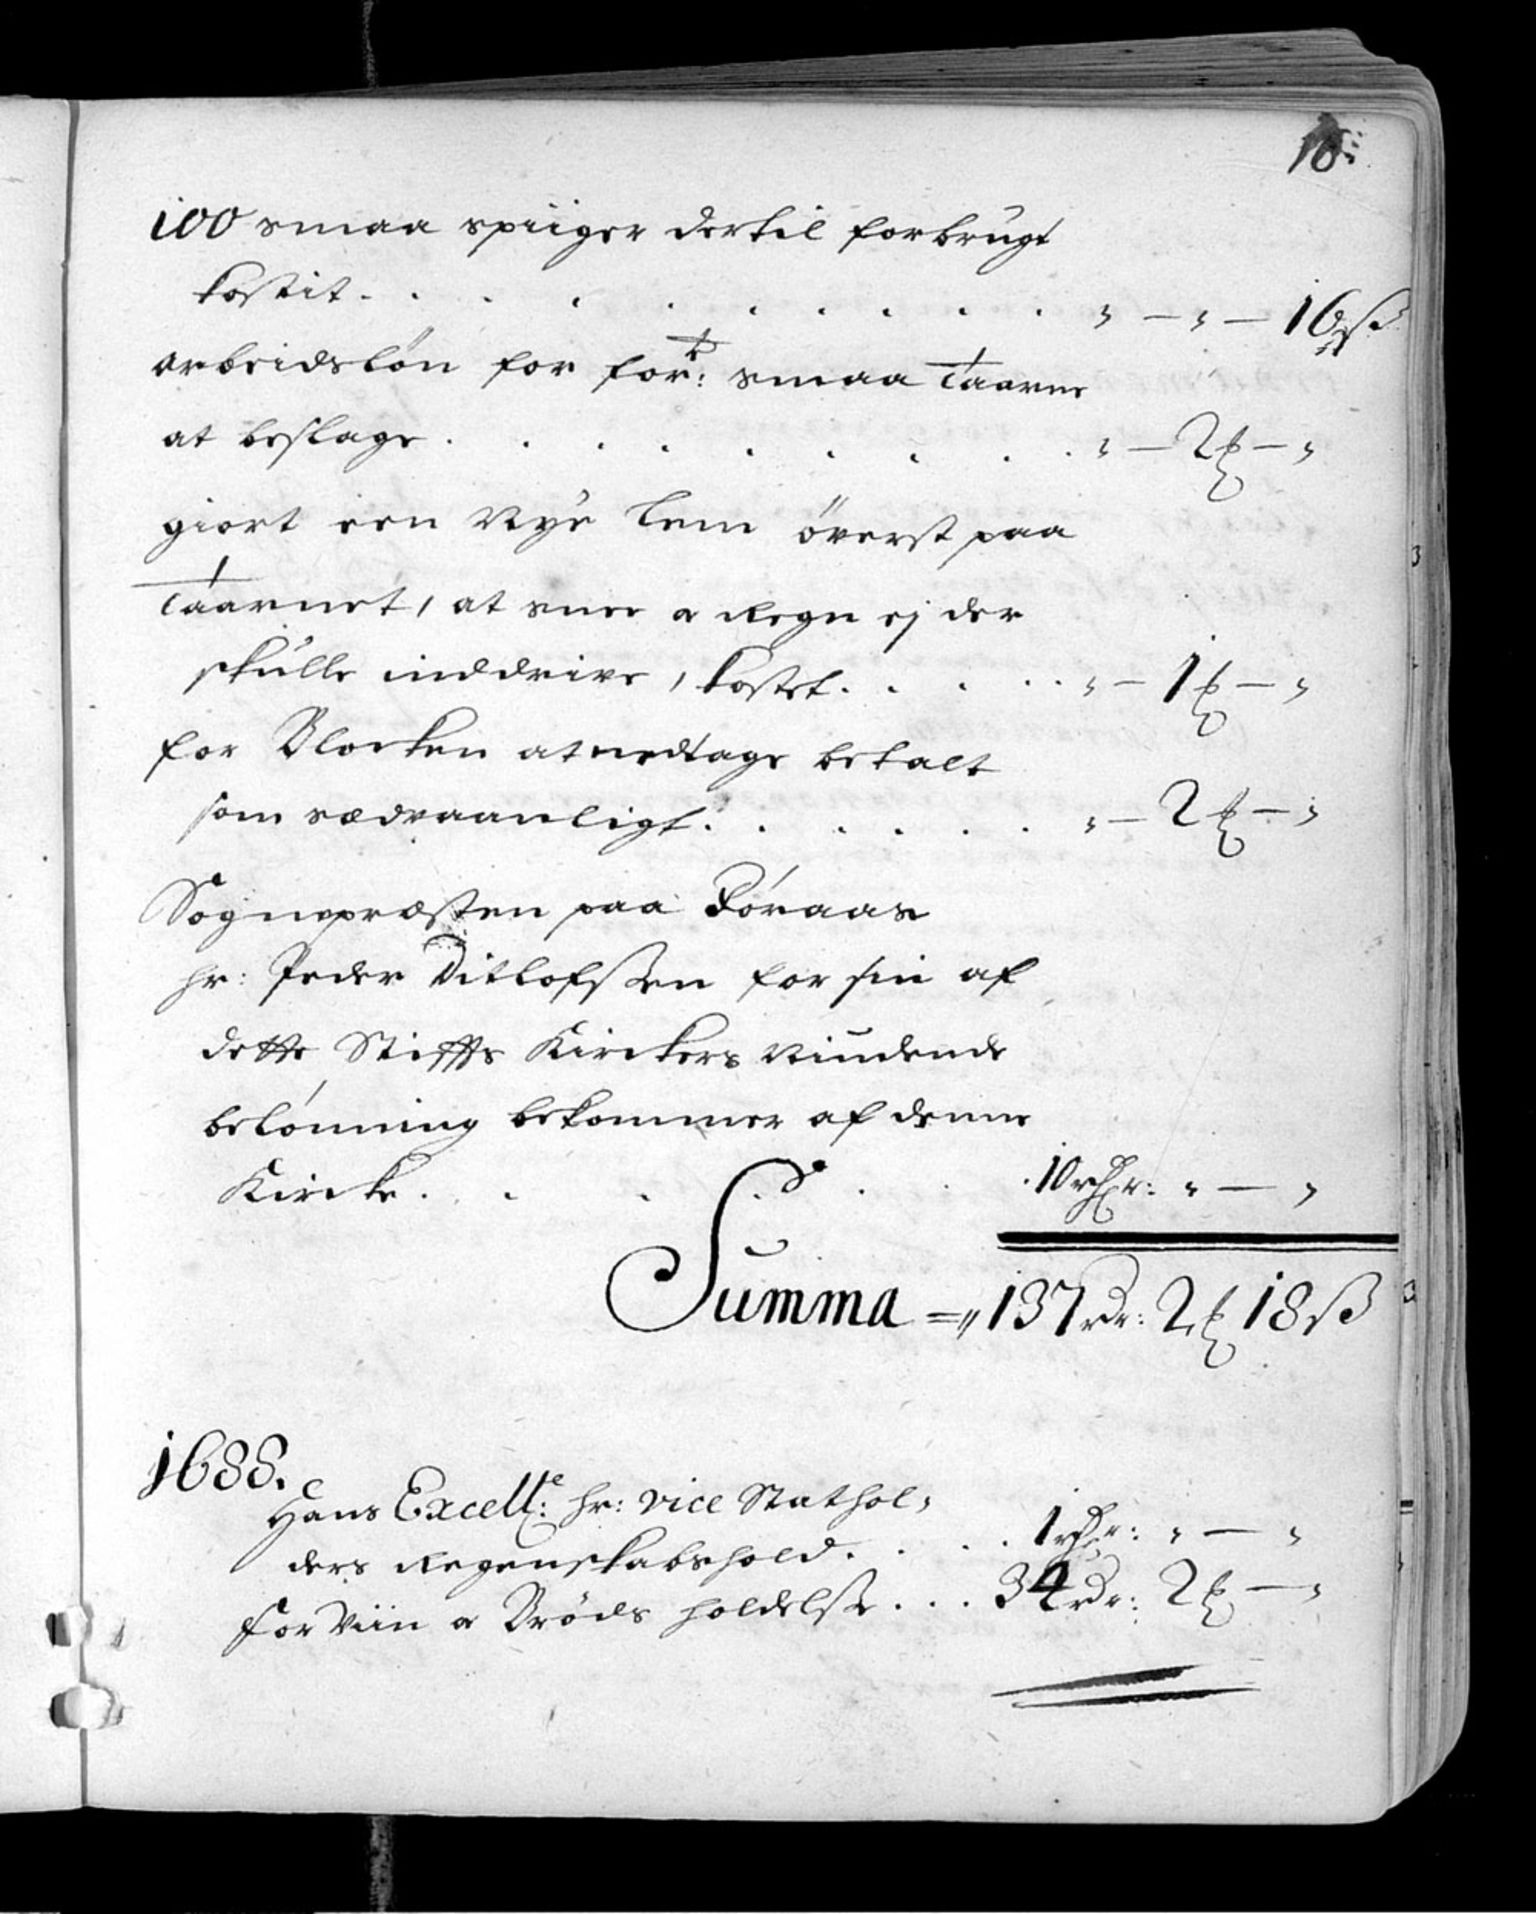 16.
100 smaa spiiger dertil forbrugt
kostit . . . . . . . . . . " — " — 16 ß
arbeidsløn for for.t: smaa Taarne
at beslage . . . . . . . . . " — 2 ℳ — "
giort een Nye Lem överst paa
Taarnet, at snee a Regn ej der
skulle inddrive, kostet . . . . . " — 1 ℳ — "
for Klocken at nedtage betalt
som sædvaanligt . . . . . . " — 2 ℳ — "
Sognepræsten paa Röraas
hr: Peder Ditlofssen for sin af
dette Stiffts Kirckers Niudende
belönning bekommer af denne
Kircke . . . . . . 10 rdr: " — "
Summa = „ 137 rdr: 2 ℳ 18 ß
1688.
Hans Excellce: hr: vice Stathol-
ders Regenskabshold . . . . 1 rdr: " — "
for Viin a Bröds holdelse . . . 34 rdr: 2 ℳ — "